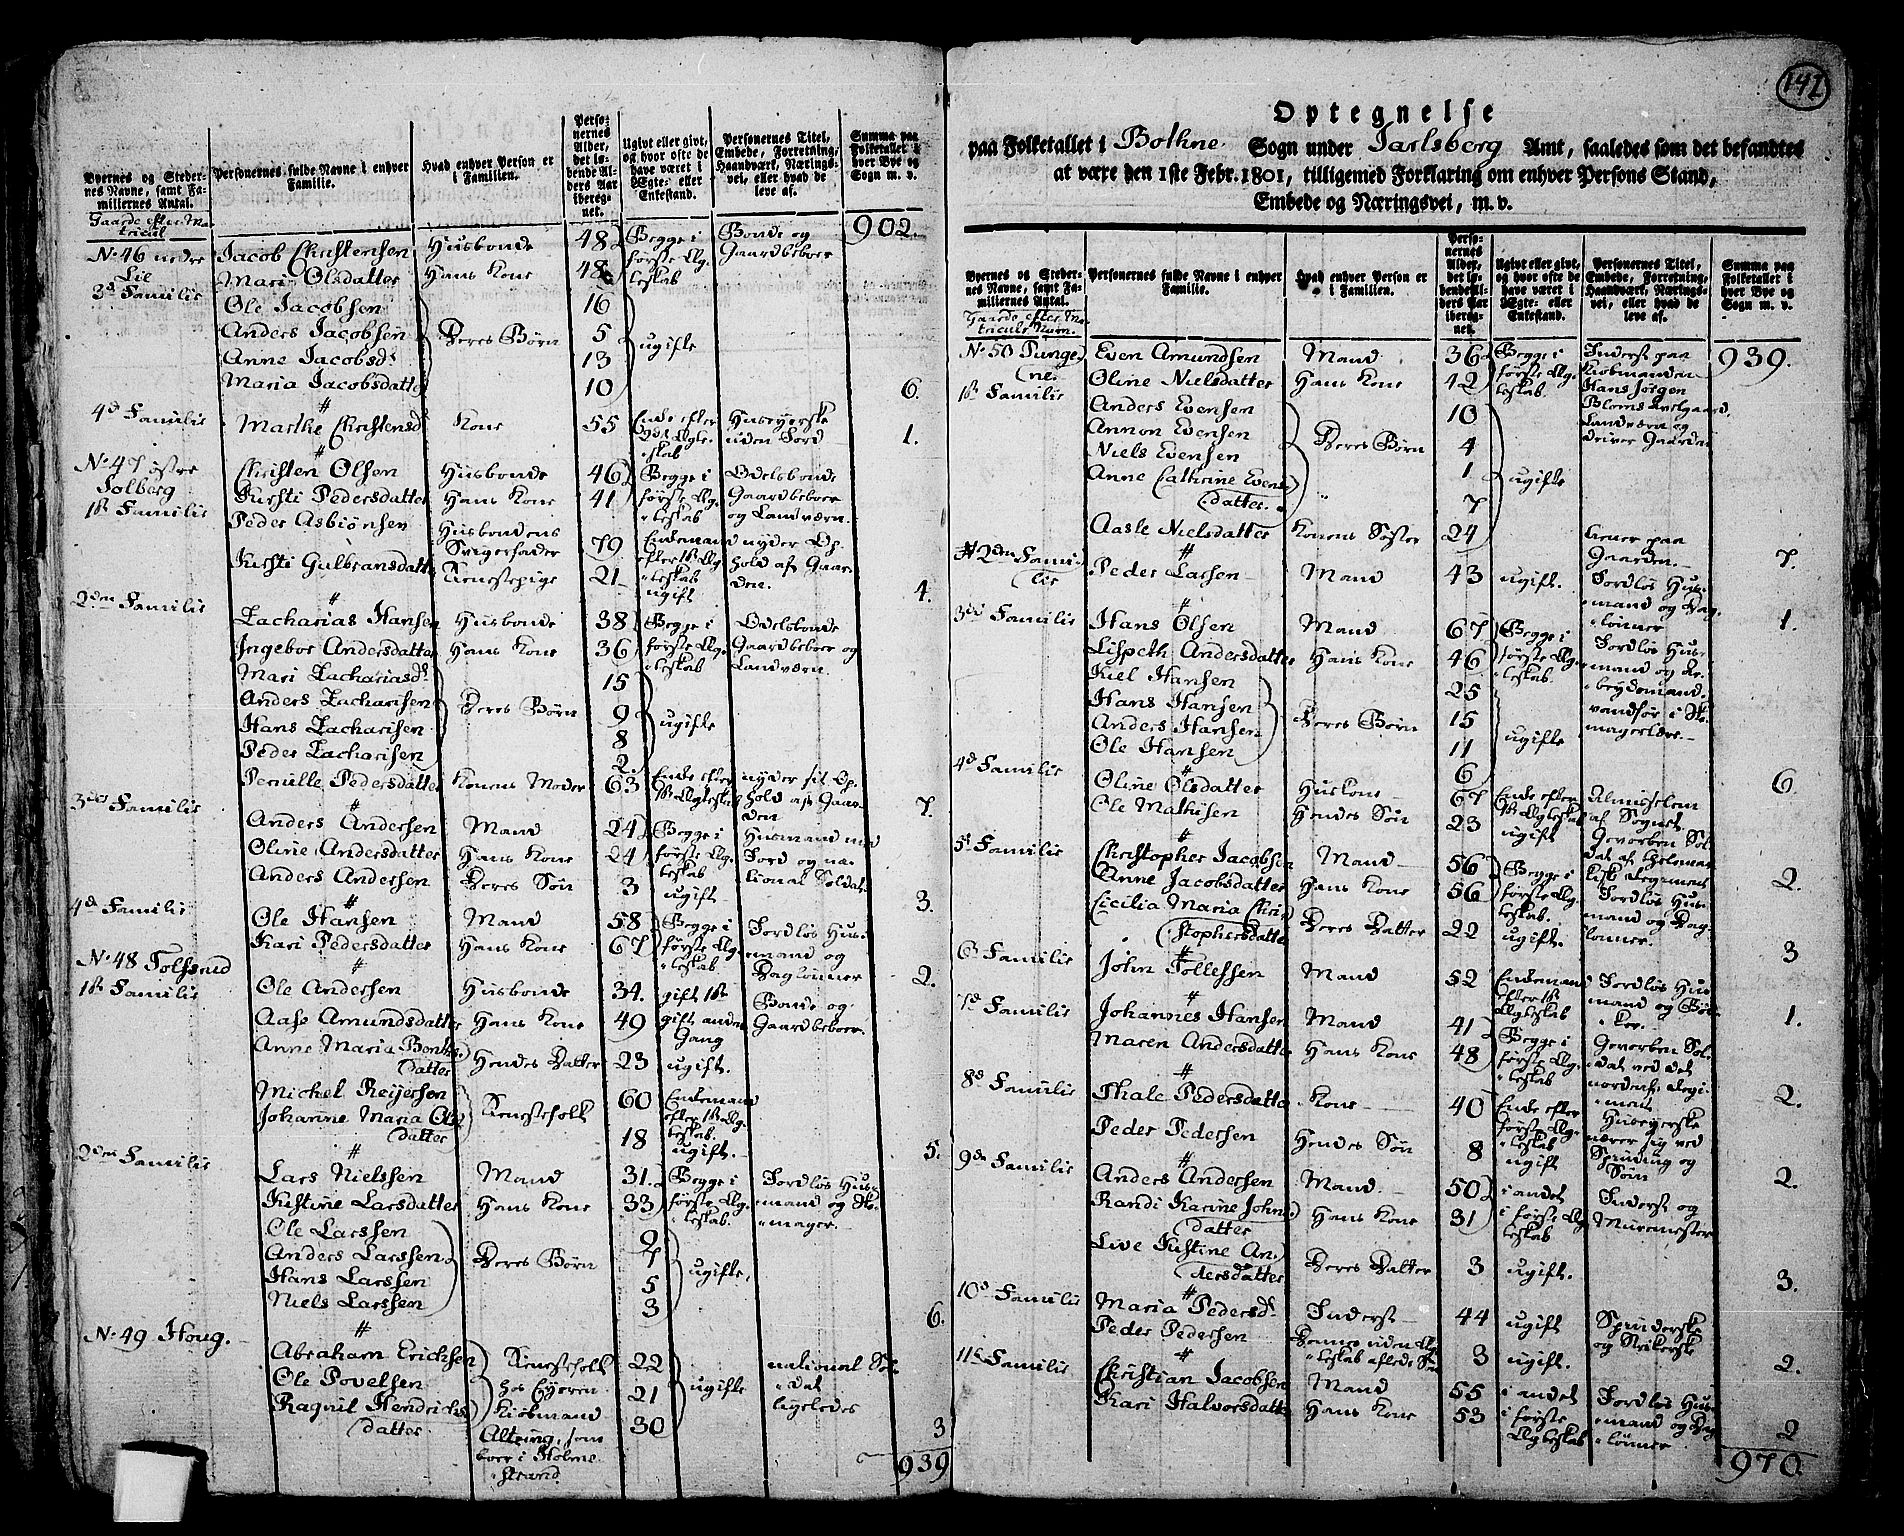 Byernes og Steder-
nes Navne, samt Fa-
miliernes Antal.
Personernes fulde Navne i enhver
Familie.
Hvad enhver Person er
i Familien.
Perso-
nernes
Alder,
det lø-
bende Al-
ders Aar
iberegn-
net.
Ugivt eller givt,
og hvor ofte de
have været i
Ægte- eller
Enkestand.
Personernes Titel,
Embede, Forretning,
Haandværk, Nærings-
vei, eller hvad de
leve af.
Summa paa
Folketallet i
hver Bye og
Sogn m. v.
Gaarde efter Ma-
tricul
902.
No. 46 nedre Lie 3d Familie
Jacob Christensen Husbonde 48 Begge i første Ægteskab Bonde og Gaardbeboer
Mari Olsdatter Hans Kone 48
Ole Jacobsen 16
Anders Jacobsen Deres Børn 5 ugifte
Anne Jacobsd. 13
Maria Jacobsdatter 10 6.
4d Familie Marthe Christensd. Kone 55 Enke efter Ægteskab Huusyerske uden Jord 1.
No. 47 østre Solberg 1st Familie
Christen Olsen Husbonde 46 Begge i første Ægteskab Odelsbonde Gaardbeboer og Landværn.
Kirsti Pedersdatter Hans Kone 41
Peder Asbiönsen Husbondens Svigerfader 79 Enkemand efter 1st Ægteskab nyder Ophold af Gaarden.
Kirsti Gulbransdatter Tienestepige 21 ugift 4.
2den Familie
Zacharias Hansen Husbonde 38 Begge i første Ægteskab Odelsbonde Gaardbeboer og Landværn
Ingebor Andersdatter Hans Kone 36
Mari Zachariasd. 15
Anders Zacharisen Deres Børn 9 ugifte
Hans Zacharisen 8
Peder Zacharisen 2.
Pernille Pedersdatter Konens Moder 63 Enke efter 1st Ægteskab nyder sit Ophold af Gaarden 7.
3die Familie
Anders Andersen Mand 24 Begge i første Ægteskab Husmand med Jord og national Soldat
Oline Andersdatter Hans Kone 24
Anders Andersen Deres Søn 3 ugift 3.
4d Familie
Ole Hansen Mand 58 Begge i første Ægteskab Jordløs Husmand og Daglønner
Kari Pedersdatter Hans Kone 67 2.
No. 48 Tolfsrud 1st Familie
Ole Andersen Husbonde 34. gift 1st Bonde og Gaardbeboer
Aase Amundsdatter Hans Kone 49 gift anden Gang
Anne Maria Bentsdatter Hendes Datter 23 ugift.
Michel Reijersen Tienestefolk 60 Enkemand efter 1st Ægteskab.
Johanne Maria Olsdatter 18 ugift. 5.
2den Familie
Lars Nielssen Mand 31. Begge i første Ægteskab. Jordløs Husmand og Skomager.
Kistine Larsdatter Hans Kone 33
Ole Larssen 9
Anders Larssen Deres Børn 7 ugifte.
Hans Larssen 5
Niels Larssen 3 6.
No. 49 Houg.
Abraham Erichsen Tienestefolk 22 ugifte national Soldat
Ole Povelsen hos Eyeren 21 ligeledes
Ragnil Hendrichsdatter Kiøbmand 30 3
som boer i Holmestrand
939
142
Optegnelse
paa Folketallet i Bothne Sogn under Jarlsberg Amt, saaledes som det befandtes
at være den 1ste Febr. 1801, tilligemed Forklaring om enhver Persons Stand,
Embede og Næringsvei, m. v.
Byernes og Steder-
nes Navne, samt Fa-
miliernes Antal.
Personernes fulde Navne i enhver
Familie.
Hvad enhver Person er
i Familien.
Perso-
nernes
Alder,
det lø-
bende Al-
ders Aar
iberegn-
net.
Ugivt eller givt,
og hvor ofte de
have været i
Ægte- eller
Enkestand.
Personernes Titel,
Embede, Forretning,
Haandværk, Nærings-
vei, eller hvad de
leve af.
Summa paa
Folketallet i
hver Bye og
Sogn m. v.
Gaarde efter Ma-
triculs Navn.
939.
No. 50 Pungene 1st Familie
Even Amundsen Mand 36 Begge i første Ægteskab. Inderst paa Kiöbmanden Hans Jörgen Avelgaard, Landværn og driver Gaarden
Oline Nielsdatter Hans Kone 42
Anders Evensen 10
Annon Evensen Deres Børn 4
Niels Evensen 1 ugifte
Anne Cathrine Evensdatter 7
Aasle Nielsdatter Konens Søster 24 tiener paa Gaarden. 7.
2den Familie
Peder Larsen Mand 43 ugift. Jordløs Husmand og Daglønner 1.
3die Familie
Hans Olsen Mand 67 Begge i første Ægteskab. Jordløs Husmand og Arbeydsmand.
Lispeth Andersdatter Hans Kone 46
Kiel Hansen 25 vandför i Skomagerlære.
Hans Hansen Deres Børn 15
Anders Hansen 11 ugifte
Ole Hansen 6 6.
4d Familie
Oline Olsdatter Huskone 67 Enke efter 1st Ægteskab Almisselem af Sognet
Ole Mathisen Hendes Søn 23 ugift Gevorben Soldat af Regiment 2.
5t Familie
Christopher Jacobsen Mand 56 Begge i første Ægteskab. Jordløs Husmand og Daglønner.
Anne Jacobsdatter Hans Kone 56
Cicilia Maria Christophersdatter Deres Datter 22 ugift. 3
6t Familie
John Tollessen Mand 52 Enkemand efter 1st Ægteskab Jordløs Husmand og Bødker. 1.
7d Familie
Johannes Hansen Mand 41 Begge i første Ægteskab Gevorben Soldat ved det nordenf. Regiment
Maren Andersdatter Hans Kone 48 2.
8d Familie
Thale Pedersdatter Kone 40 Enke efter første Ægteskab Huseyerske nærer sig ved Spinding og
Peder Pedersen Hendes Søn 8 ugift 2.
9de Familie
Anders Andersen Mand. 50 i andet Inderst og Muremester
Randi Karine Johnsdatter Hans Kone 31 i første Ægteskab
Live Kistine Andersdatter Deres Datter 3 ugift. 3.
10d Familie
Maria Pedersd. Inderst 44 ugift Spinderske og Strikerske
Peder Pedersen Dennes uden Ægteskab aflede Søn 3 ugift. 2.
11te Familie
Christian Jacobsen Mand 55 i andet Jordløs Husmand og Daglønner
Kari Halvorsdatter Hans Kone 53 i første Ægteskab 2
970